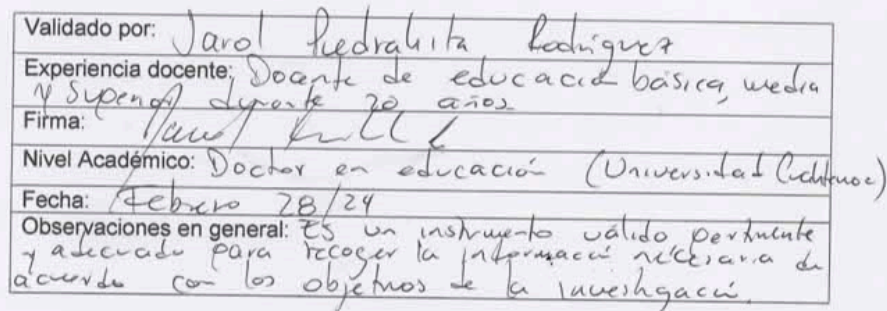 Validado por: Jarol Piedrahita Rodriguez
Experiencia docente: Docente de educación básica, media
y Superior durante 20 años
Firma:
Nivel Académico: Doctor en educación (Universidad
Fecha: Febrero 28/24
Observaciones en general: Es un instrumento válido pertinente
y adecuado para recoger la información necesaria de
acuerdo con los objetivos de la investigación.